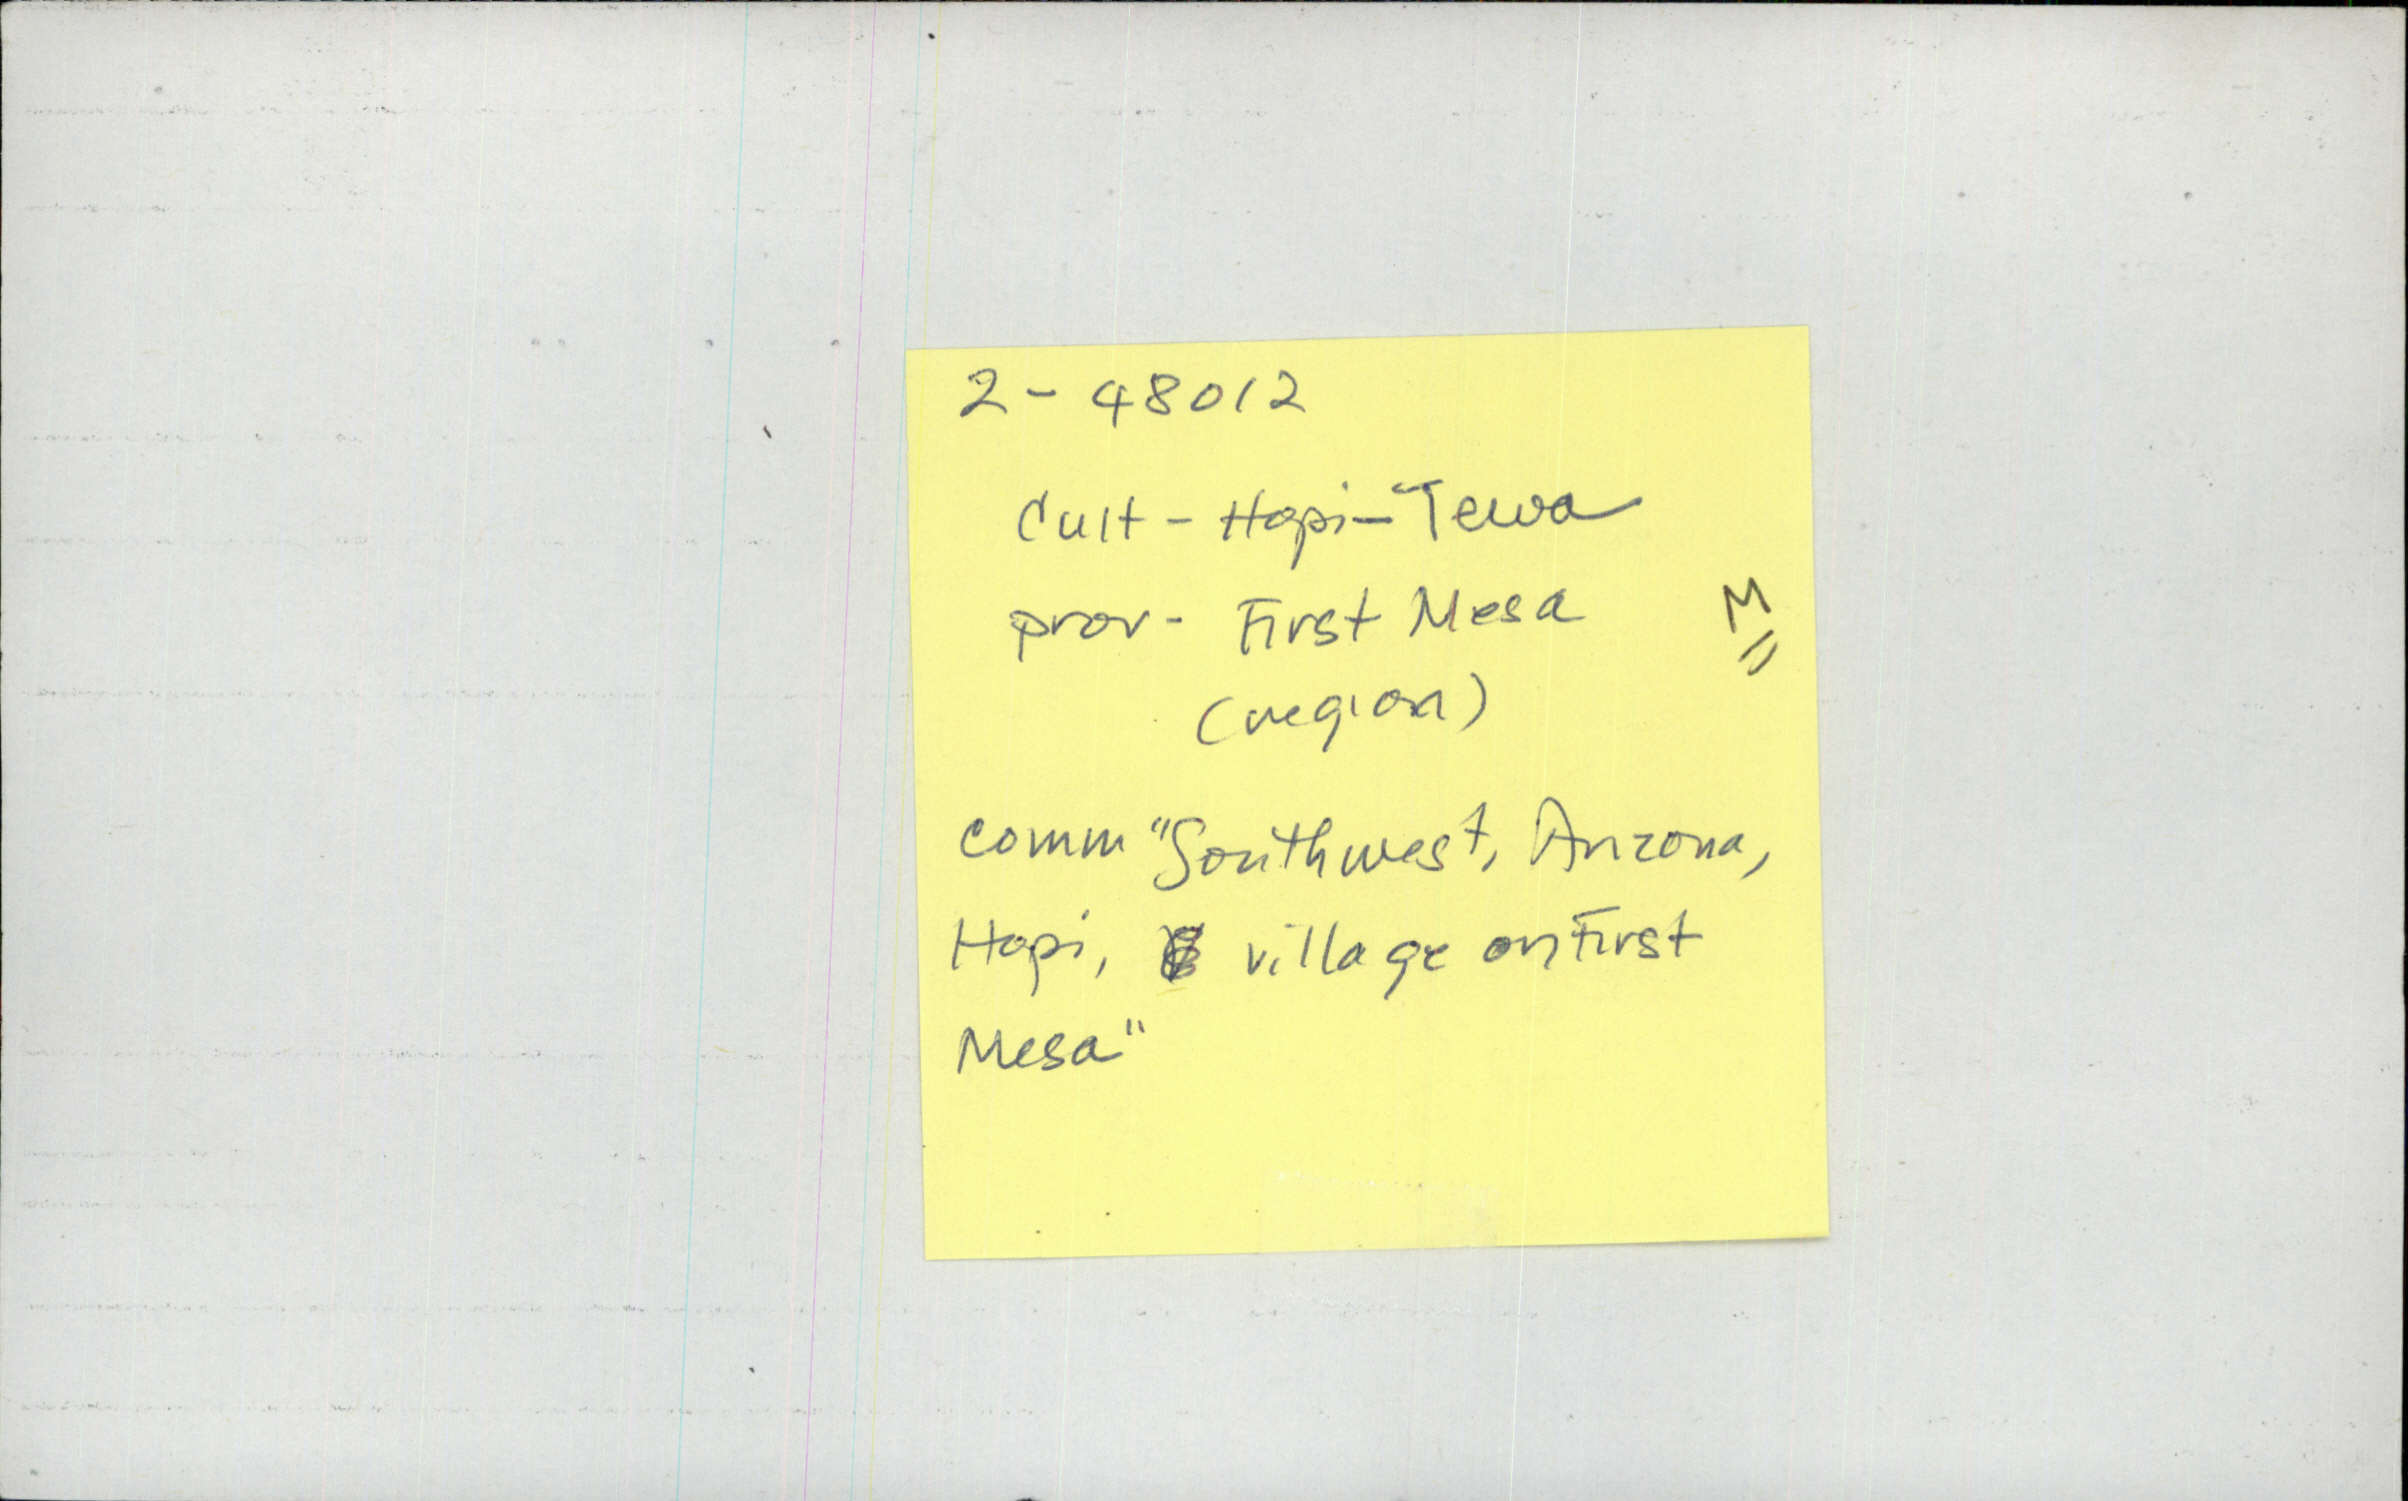 2-48012
Cult - Hopi-Tewa
prov- First Mesa
M
(region)
comm "Southwest, Arizona,
Hopi, village on First
Mesa"